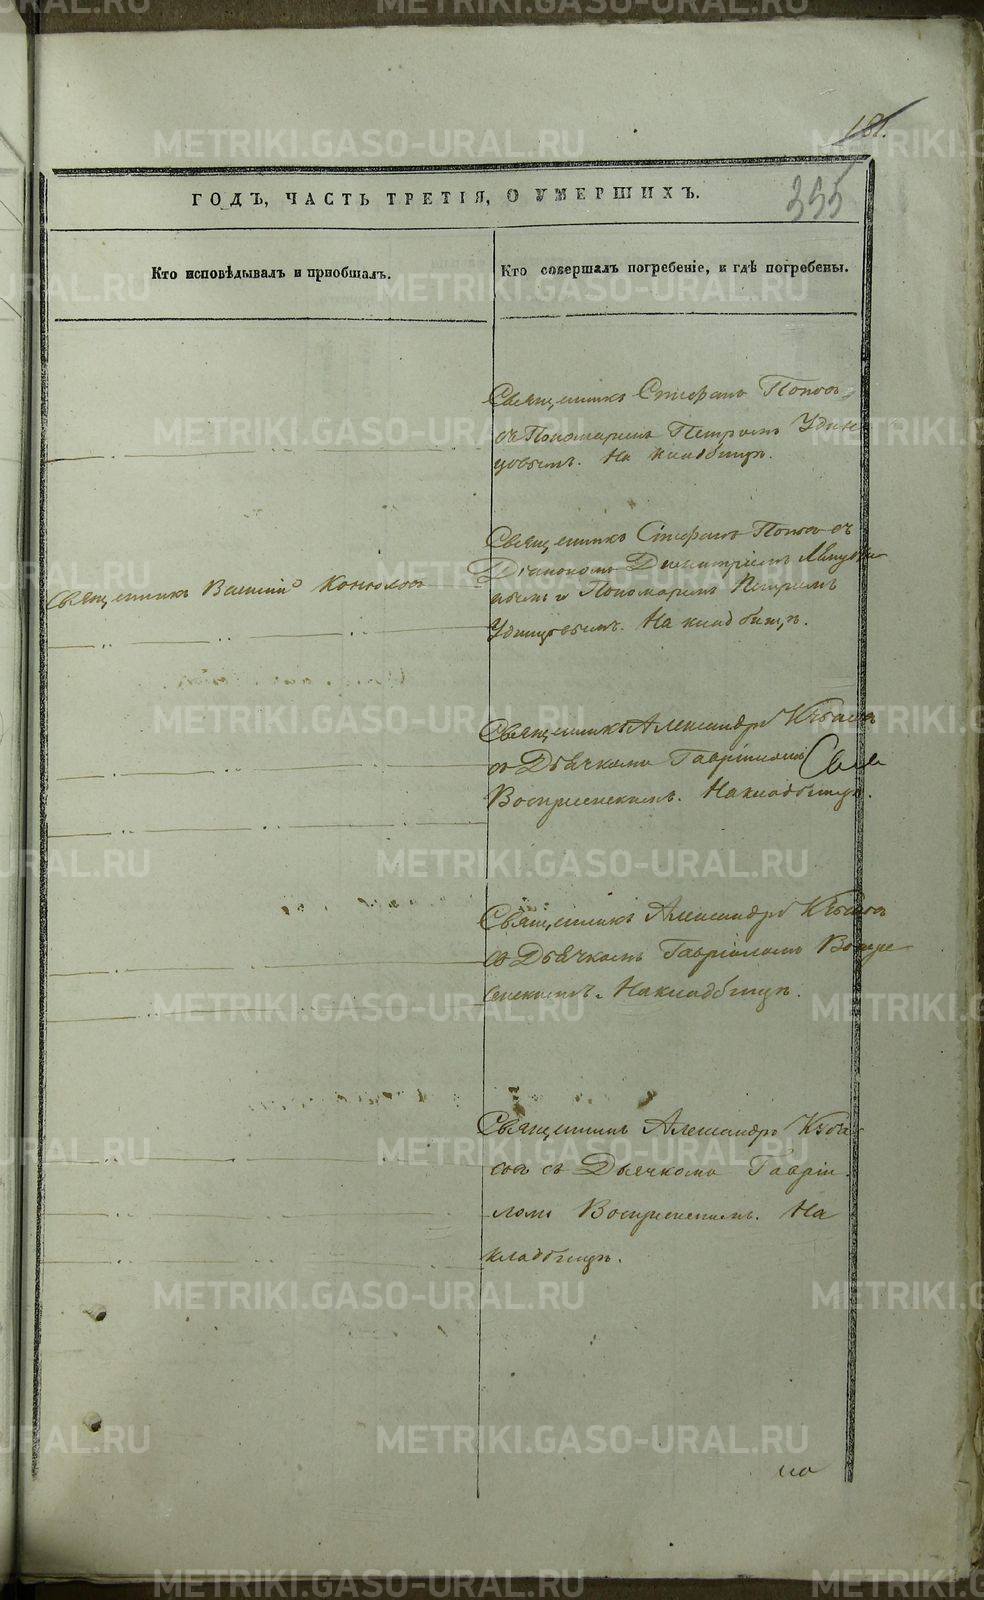 181.
355
ГОДЪ, ЧАСТЬ ТРЕТІЯ, О УМЕРШИХЪ.
Кто исповѣдывалъ и приобщалъ.
Кто совершалъ погребеніе, и гдѣ погребены.
Священникъ Стефанъ Поповъ
съ Пономаремъ Петромъ Удин
цовымъ. На кладбищѣ.
Священникъ Стефанъ Поповъ съ
Діакономъ Димитріемъ
и Пономаремъ Петромъ
Удинцовымъ. На кладбищѣ.
Священникъ Василій
Священникъ Александръ
съ Дьячкомъ Гавріиломъ
Воскресенскимъ. На кладбищѣ.
Священникъ Александръ
съ Дьячкомъ Гавріиломъ Воскре
сенскимъ. На кладбищѣ.
Священникъ Александръ
съ Дьячкомъ Гаврiи
ломъ Воскресенскимъ. На
кладбищѣ.
METRIKI.GASO-URAL.RU